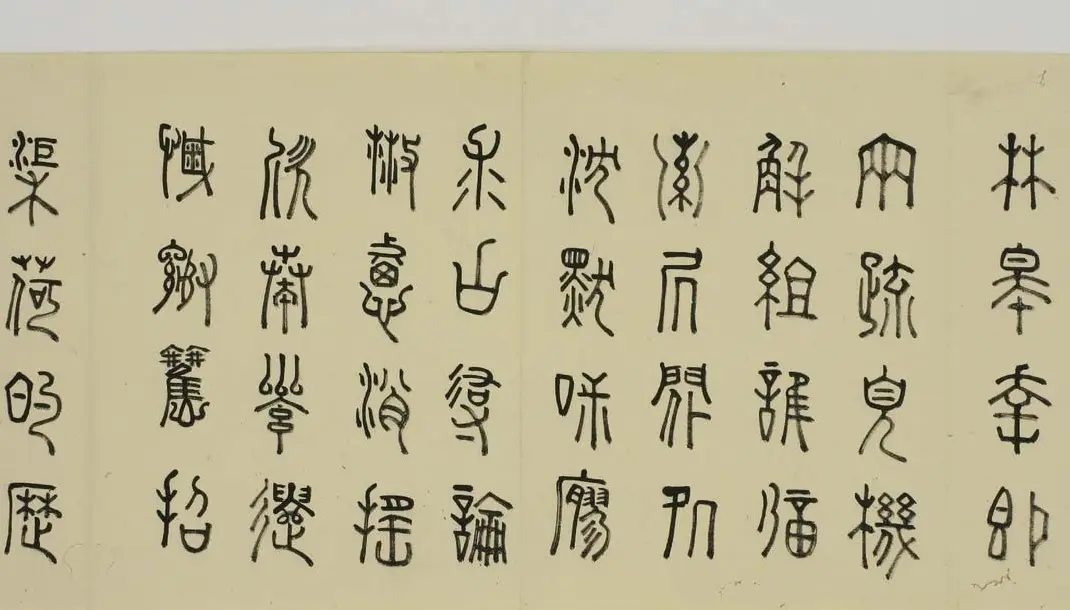 林皋幸即
兩疏見機
解組誰偪
索凥閒処
沈默㖉廖
求古尋論
散慮消搖
欣奏累遣
慽謝歡招
渠荷的歷